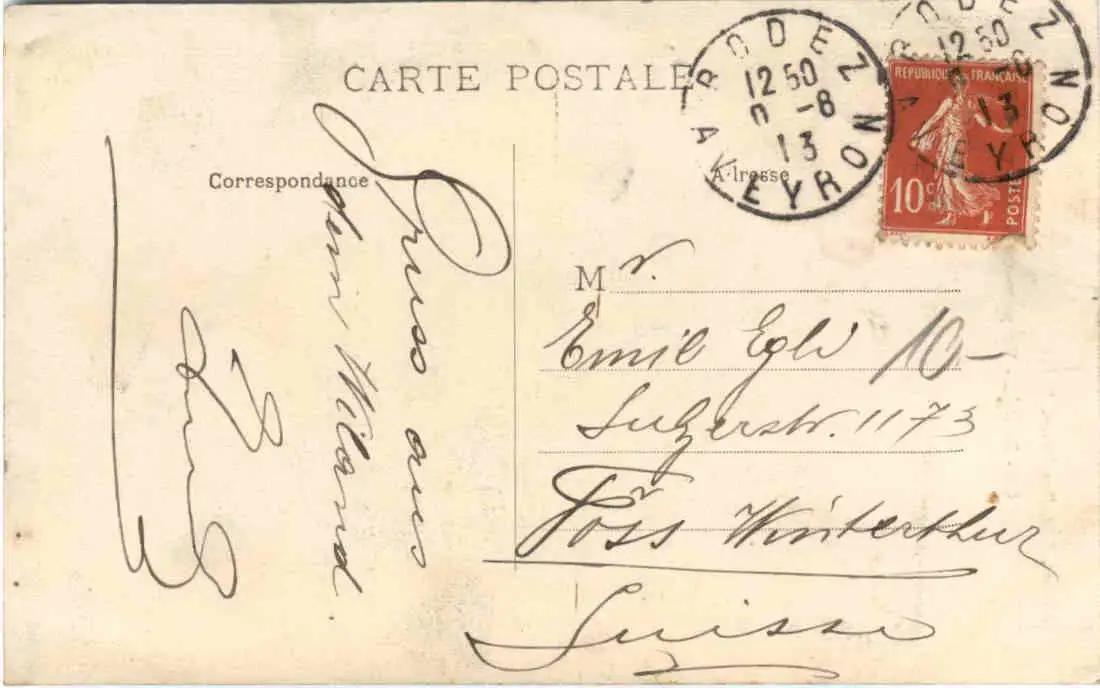 CARTE POSTALE
Correspondance
Adresse
RODEZ
12 50
-8
13
AVEYRON
RODEZ
12 50
13
AVEYRON
REPUBLIQUE FRANÇAISE
10c
POSTES
Gruss aus
dem Miland
Mr.
Emil Egli 10-
Sulzerstr. 1173
Töss Winterthur
Suisse